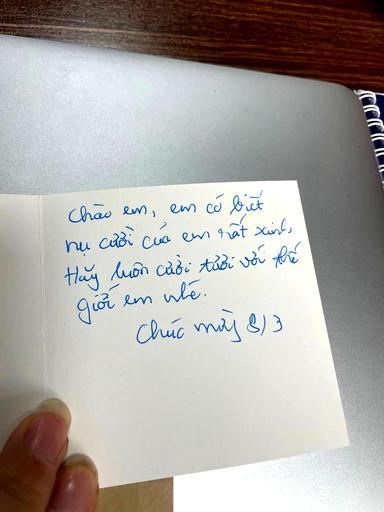 Chào em, em có biết
nụ cười của em rất xinh,
Hãy luôn cười tươi với thế
giới em nhé.
Chúc mừng 8/3